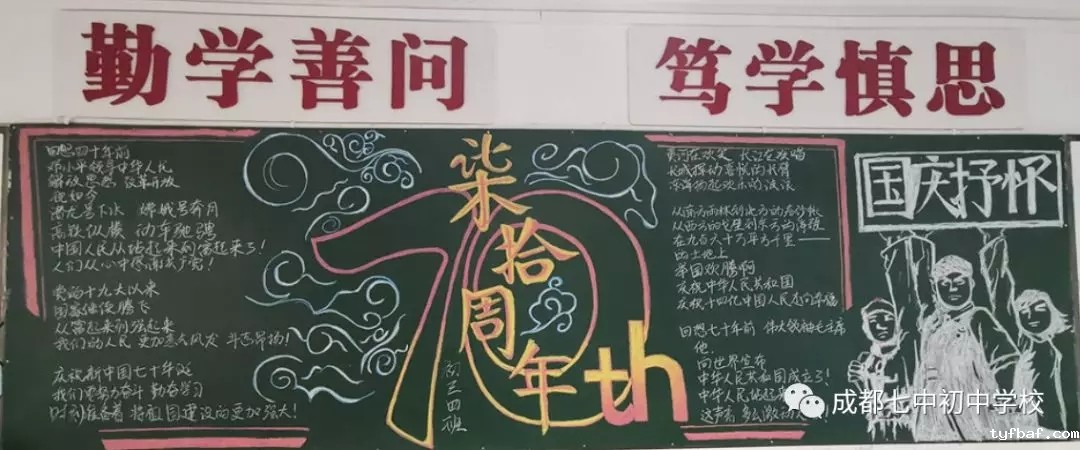 勤学善问
笃学慎思
回想四十年前
邓小平领导中华人民
解放思想 改革开放
到如今
潜龙号下水 嫦娥号奔月
高铁似箭 动车驰骋
中国人民从站起来到富起来了!
人们从心中传颂共产党!
党的十九大以来
国家继续腾飞
从富起来到强起来
我们的人民 更加意气风发 斗志昂扬!
庆祝新中国七十年诞
我们要努力奋斗 勤奋学习
时刻准备着 将祖国建设的更加强大!
柒拾周年
70th
初三四班
黄河在欢笑 长江在欢唱
长城挥动喜悦的臂膀
东海扬起欢乐的波浪
在九百六十万平方千里——
的土地上
举国欢腾啊
庆祝中华人民共和国
庆祝十四亿中国人民走向幸福
回想七十年前 伟大领袖毛主席
他,
向世界宣布
中华人民共和国成立了!
中华人民站起来
这声音多么激动
国庆抒怀
成都七中初中学校
tyfbaf.com